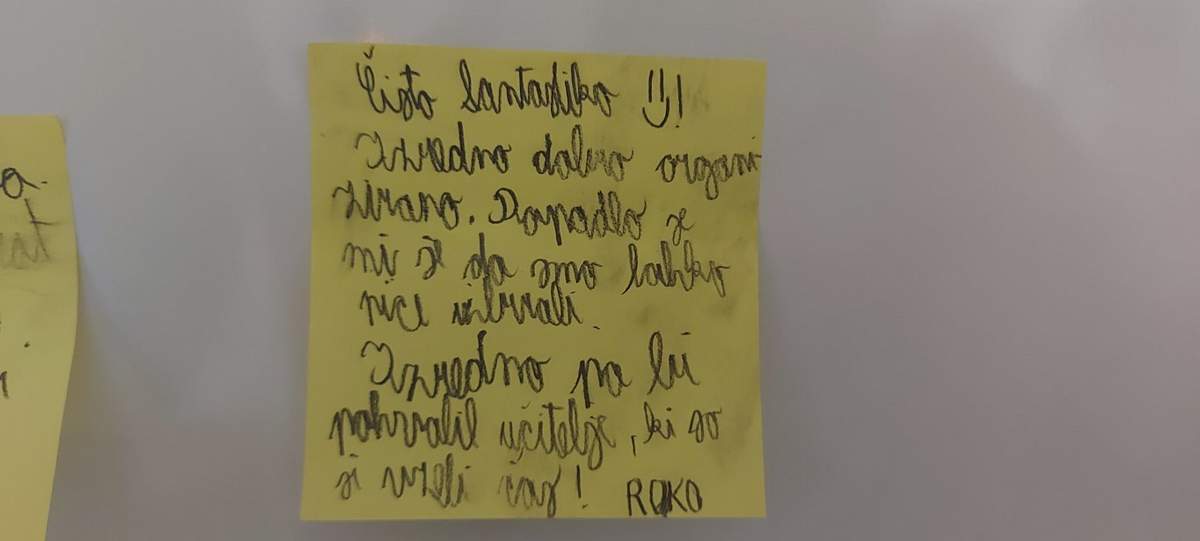 Čisto fantastiko :)!
Izredno dobro organi
zirano. Dopadlo se
mi je da smo lahko
izbirali.
Izredno pa bi
pohvalil učitelje, ki so
si vzeli čas! ROKO
a.